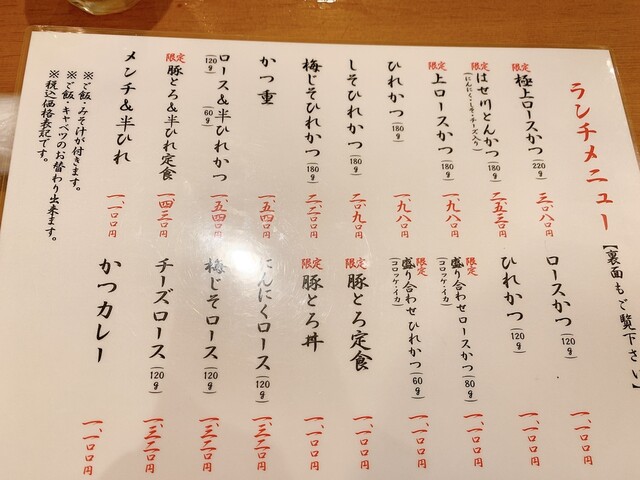 ランチメニュー
【裏面もご覧下さい】
限定 極上ロースかつ(220g) 三、〇八〇円
限定 はせ川とんかつ(180g) 二、五三〇円
(にんにく・しそ・チーズ入り)
限定 上ロースかつ(180g) 一、九八〇円
ひれかつ(180g) 一、九八〇円
しそひれかつ(180g) 二、〇九〇円
梅じそひれかつ(180g) 二、二〇〇円
かつ重 一、五四〇円
ロース&半ひれかつ 一、五四〇円
(120g) (60g)
限定 豚とろ&半ひれ定食 一、四三〇円
メンチ&半ひれ 一、一〇〇円
※ご飯・みそ汁が付きます。
※ご飯・キャベツのお替わり出来ます。
※税込価格表記です。
ロースかつ(120g) 一、一〇〇円
ひれかつ(120g) 一、一〇〇円
限定 盛り合わせロースかつ(80g) 一、一〇〇円
(コロッケ・イカ)
限定 盛り合わせひれかつ(60g) 一、一〇〇円
(コロッケ・イカ)
限定 豚とろ定食 一、一〇〇円
限定 豚とろ丼 一、一〇〇円
にんにくロース(120g) 一、三二〇円
梅じそロース(120g) 一、三二〇円
チーズロース(120g) 一、三二〇円
かつカレー 一、一〇〇円